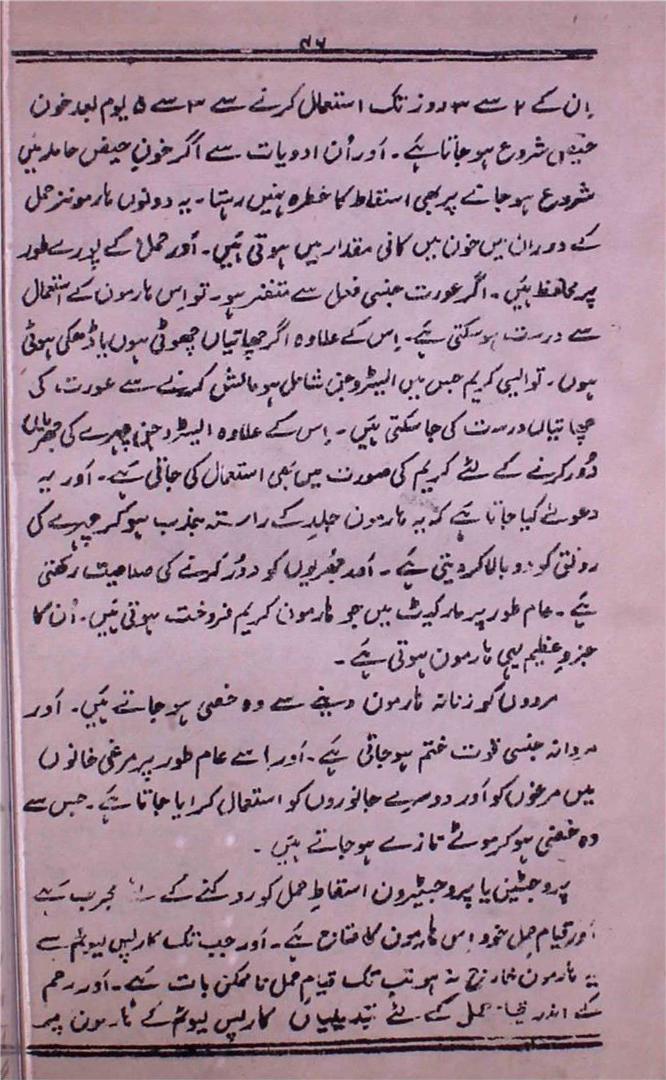 ۴۶
اِن کے ۲ سے ۳ روز تک استعمال کرنے سے ۳ سے ۵ یوم بعد خون
حیض شروع ہو جاتا ہَے۔ اَور اُن ادویات سے اگر خونِ حیض حاملہ میں
شروع ہو جانے پر بھی اسقاط کا خطرہ نہیں رہتا۔ یہ دونوں ہارمونز حمل
کے دوران میں خون میں کافی مقدار میں ہوتی ہَیں۔ اَور حمل کے پورے طور
پر محافظ ہَیں۔ اگر عورت جنسی فعل سے متنفر ہو۔ تو اِس ہارمون کے استعمال
سے درست ہو سکتی ہَے۔ اِس کے علاوہ اگر چھاتیاں چھوٹی ہوں یا ڈھلکی ہوئی
ہوں۔ تو ایسی کریم جس میں ایسٹروجن شامل ہو مالش کرنے سے عورت کی
چھاتیاں درست کی جا سکتی ہَیں۔ اِس کے علاوہ ایسٹروجن چہرے کی جھریاں
دُور کرنے کے لئے کریم کی صورت میں بھی استعمال کی جاتی ہَے۔ اَور یہ
دعوےٰ کیا جاتا ہَے کہ یہ ہارمون جلد کے راستہ جذب ہو کر چہرے کی
رونق کو دوبالا کر دیتی ہَے۔ اَور جھریوں کو دُور کرنے کی صلاحیت رکھتی
ہَے۔ عام طور پر مارکیٹ میں جو ہارمون کریم فروخت ہوتی ہَیں۔ اُن کا
جزوِ عظیم یہی ہارمون ہوتی ہَے۔
مردوں کو زنانہ ہارمون دینے سے وہ خصی ہو جاتے ہَیں۔ اَور
مردانہ جنسی قوت ختم ہو جاتی ہَے۔ اَور اِسے عام طور پر مرغی خانوں
میں مرغوں کو اَور دوسرے جانوروں کو استعمال کرایا جاتا ہَے۔ جس سے
وہ خصی ہو کر موٹے تازے ہو جاتے ہَیں۔
پروجسٹین یا پروجیسٹرون اسقاطِ حمل کو روکنے کے مجرب ہَے
اَور قیامِ حمل خود اِس ہارمون کا محتاج ہَے۔ اَور جب تک کارپس لیوٹیم سے
یہ ہارمون خارج نہ ہو تب تک قیامِ حمل ناممکن بات ہَے۔ اَور رحم
کے اندر حمل کے لئے تبدیلیاں کارپس لیوٹیم کے ہارمون پر